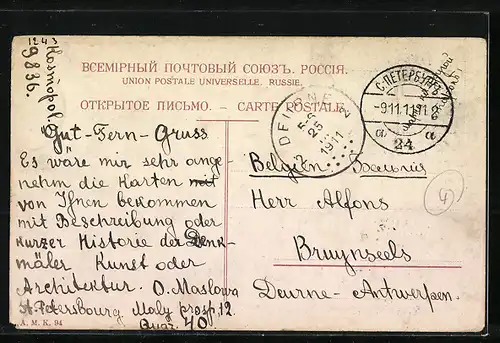 1243
9836.
Kosmopol.
ВСЕМІРНЫЙ ПОЧТОВЫЙ СОЮЗЪ. РОССІЯ.
UNION POSTALE UNIVERSELLE. RUSSIE.
ОТКРЫТОЕ ПИСЬМО. — CARTE POSTALE.
С. ПЕТЕРБУРГЪ
-9.11.11
24
1911
Gut-Fern-Gruss
Es wäre mir sehr ange-
nehm die Karten mit
von Ihnen bekommen
mit Beschreibung oder
kurzer Historie der Denk-
mäler Kunst oder
Architektur. O. Maslowa
St. Petersbourg. Maly prosp. 12.
Quar. 40
Belgien
Herr Alfons
Bruynseels
Deurne-Antwerpen.
А. М. К. 94